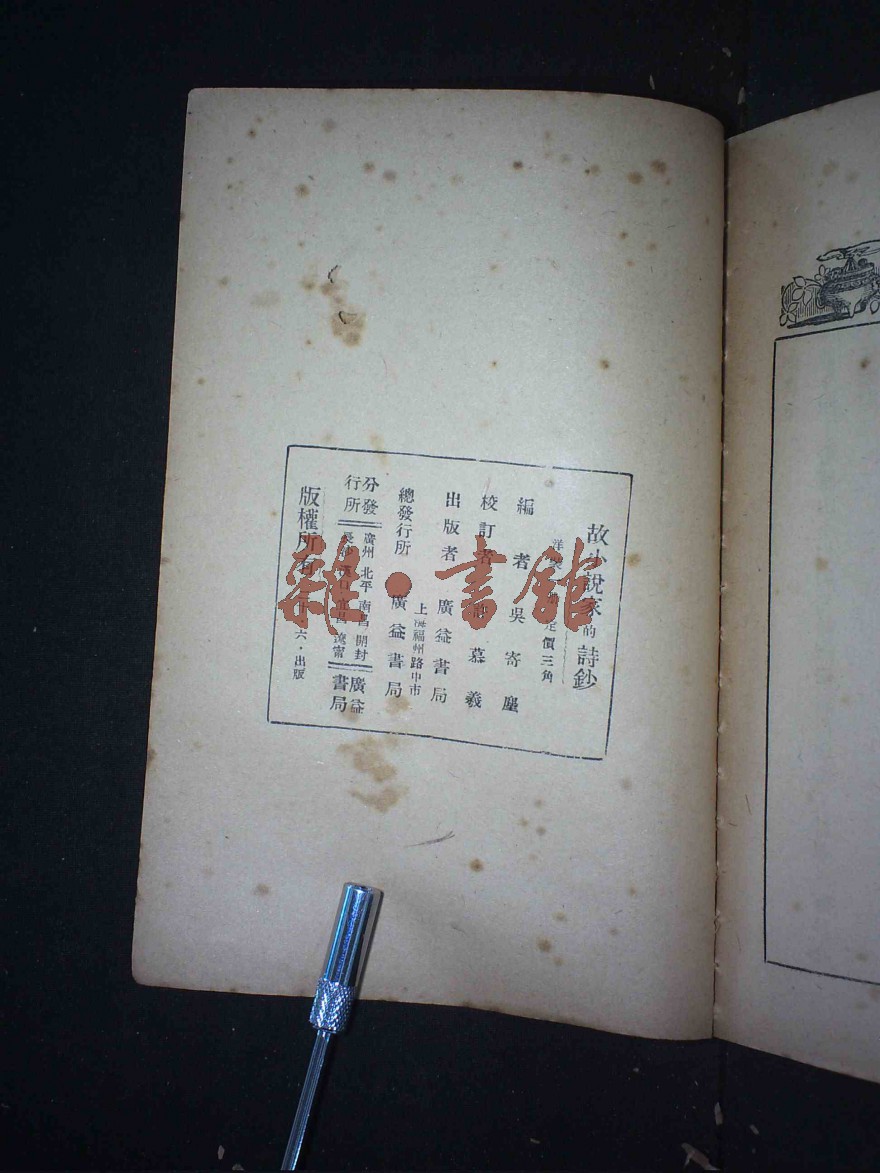 故小說家的詩鈔
洋裝 定價三角
編者 吳寄塵
校訂者 慕羲
出版者 廣益書局
上海福州路中市
總發行所 廣益書局
分發行所
廣州 北平 南昌 開封
長沙 漢口 宜昌 遼甯
廣益書局
版權所有
六・出版
雜・書館